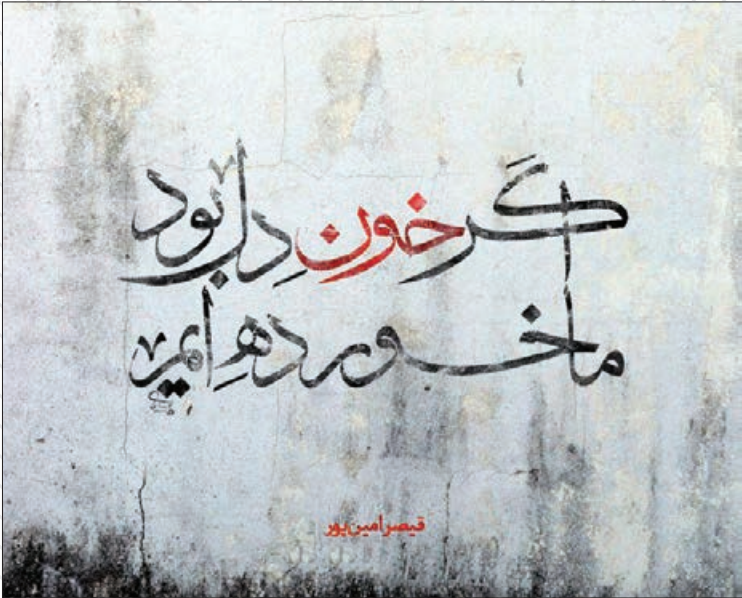 گر خونِ دل بود
ما خورده‌ایم
قیصر امین‌پور